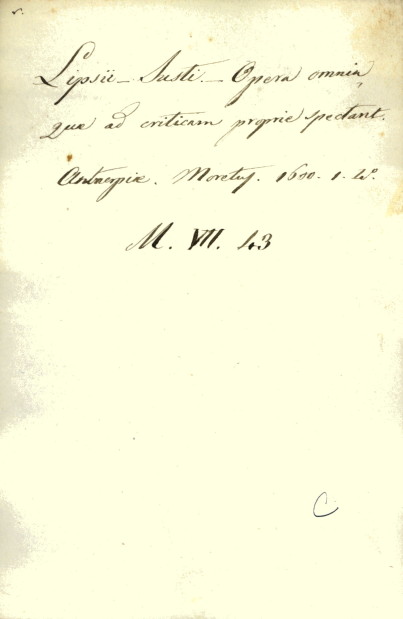 Lipsii - Justi. - Opera omnia
quæ ad criticam proprie spectant.
Antverpiæ. Moretus. 1600. 1. 4º.
M. VII. 43
C